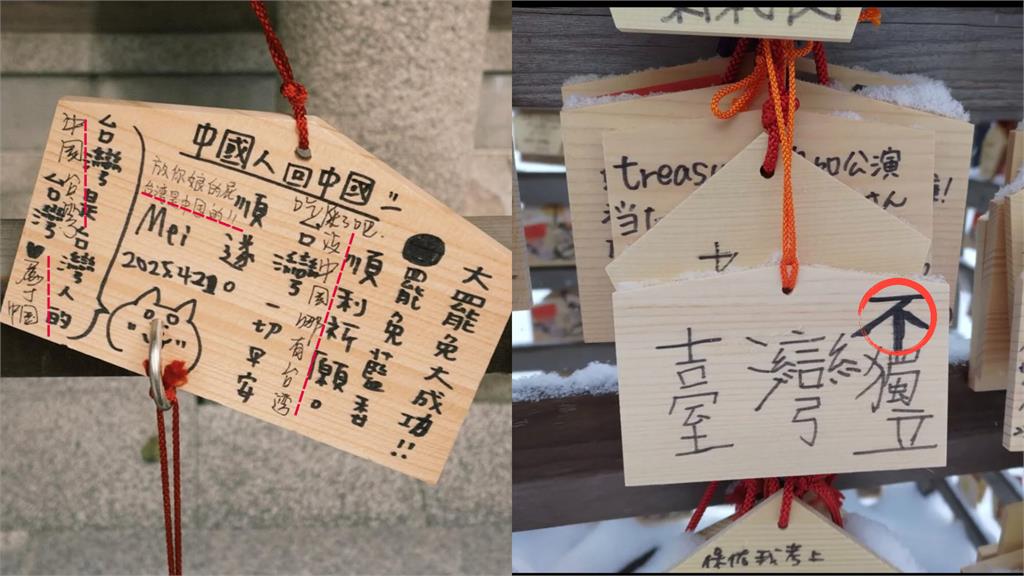 中國人回中國
大罷免大成功!!
罷免藍委
順利祈願。
台灣
順遂一切平安
Mei
放你娘的屁
台湾是中国的!!
没中国哪有台湾
台灣是台灣人的
台灣
中国台湾
属于中国
treasu
公演
当た
さん
不獨立
臺灣
保佑我考上